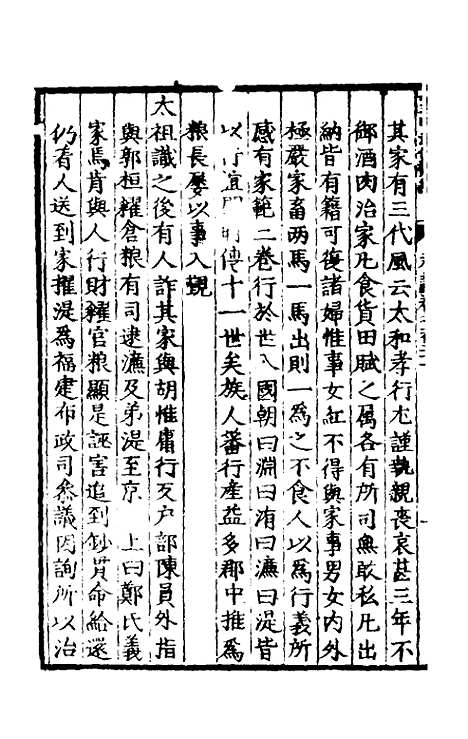 其家有三代風云太和孝行尤謹執親喪哀甚三年不
御酒肉治家凡食貨田賦之屬各有所司無敢私凡出
納皆有籍可復諸婦惟事女紅不得與家事男女內外
極嚴家畜两馬一馬出則一為之不食人以為行義所
感有家範二卷行於世入國朝曰淵曰洧曰濂曰湜皆
以行誼聞時傳十一世矣族人蕃衍產益多郡中推為
粮長屡以事入覲
太祖識之後有人詐其家與胡惟庸行叐户部陳員外指
與郭桓糴倉粮有司逮濂及弟湜至京　上曰鄭氏義
家焉肯與人行財糴官粮顯是誣害追到鈔貫命給還
仍着人送到家擢湜為福建布政司參議因詢所以治